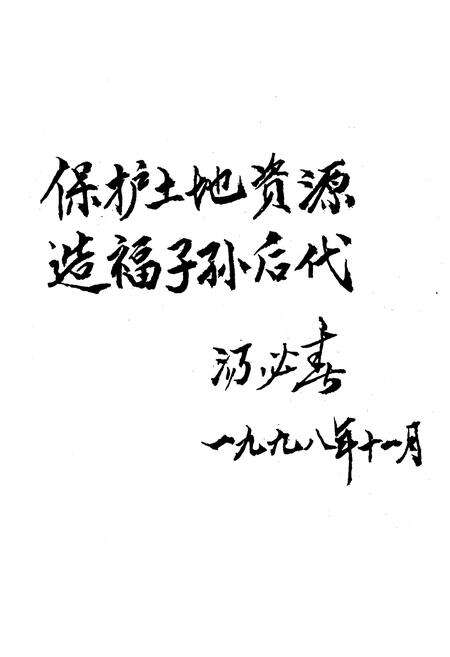 保护土地资源
造福子孙后代
必寿
一九九八年十一月